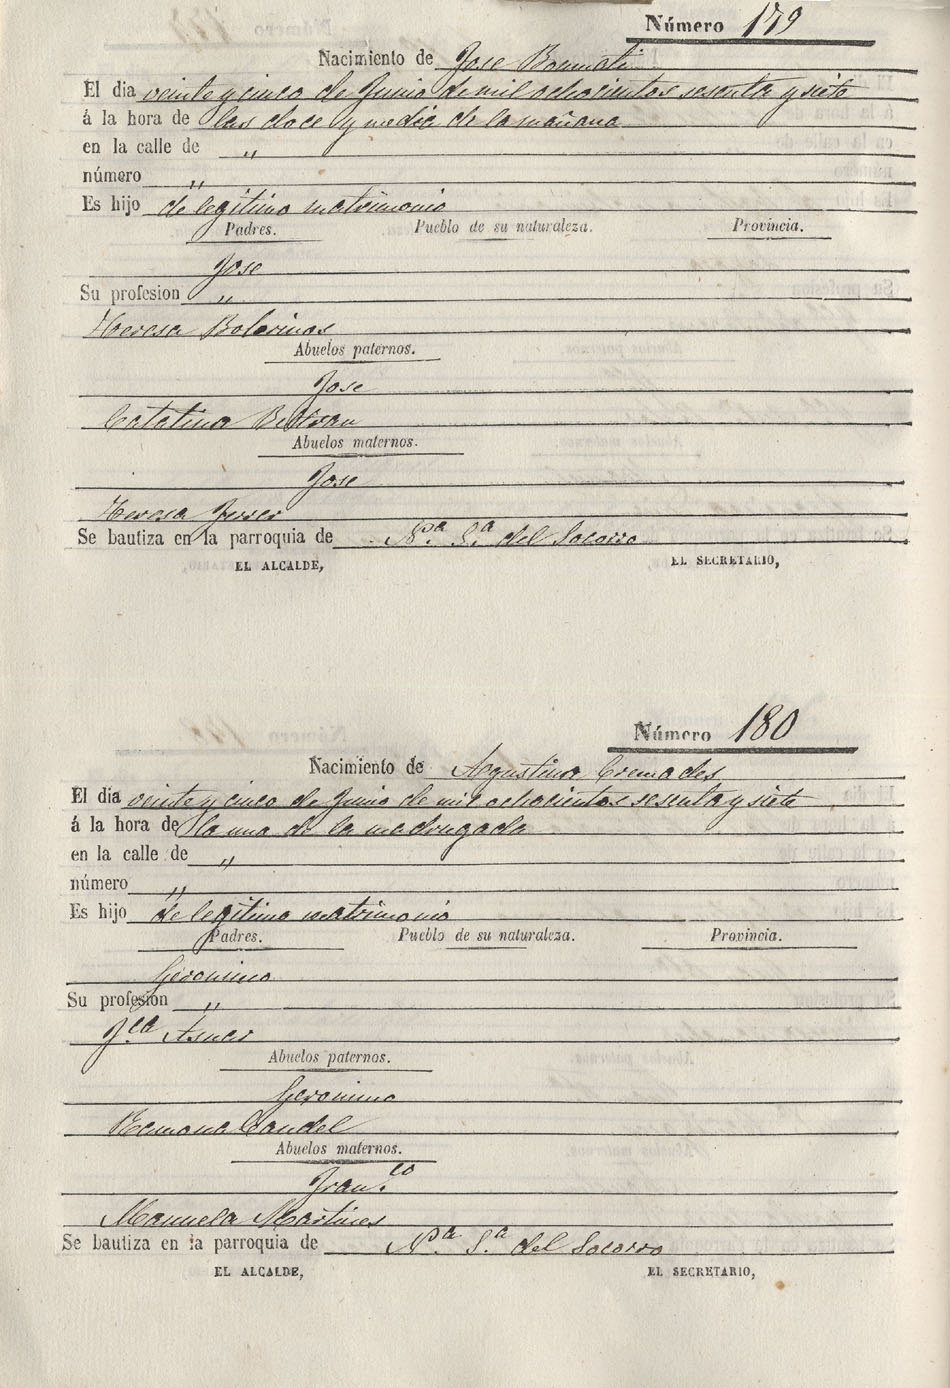 Número 179
Nacimiento de Jose Bonmati
El dia veinte y cinco de Junio de mil ochocientos sesenta y siete
á la hora de las doce y media de la mañana
en la calle de „
número „
Es hijo de legitimo matrimonio
Padres. Pueblo de su naturaleza. Provincia.
Jose
Su profesion „
Teresa Bolarinos
Abuelos paternos.
Jose
Catalina Beltran
Abuelos maternos.
Jose
Teresa Ferrer
Se bautiza en la parroquia de Nª. Sª. del Socorro
EL ALCALDE, EL SECRETARIO,
Número 180
Nacimiento de Agustina Cremades
El dia veinte y cinco de Junio de mil ochocientos sesenta y siete
á la hora de la una de la madrugada
en la calle de „
número „
Es hijo de legitimo matrimonio
Padres. Pueblo de su naturaleza. Provincia.
Geronimo
Su profesion „
Fca Asnar
Abuelos paternos.
Geronimo
Ramona Candel
Abuelos maternos.
Fran.co
Manuela Martines
Se bautiza en la parroquia de Nª. Sª. del Socorro
EL ALCALDE, EL SECRETARIO,